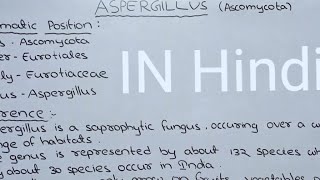 ASPERGILLUS (Ascomycota)
ematic Position:
s - Ascomycota
er - Eurotiales
ly - Eurotiaceae
us - Aspergillus
IN Hindi
rence :-
ergillus is a saprophytic fungus. occuring over a w
nge of habitats.
e genus is represented by about 132 species wh
about 30 species occur in India.
on fruits, vegetables